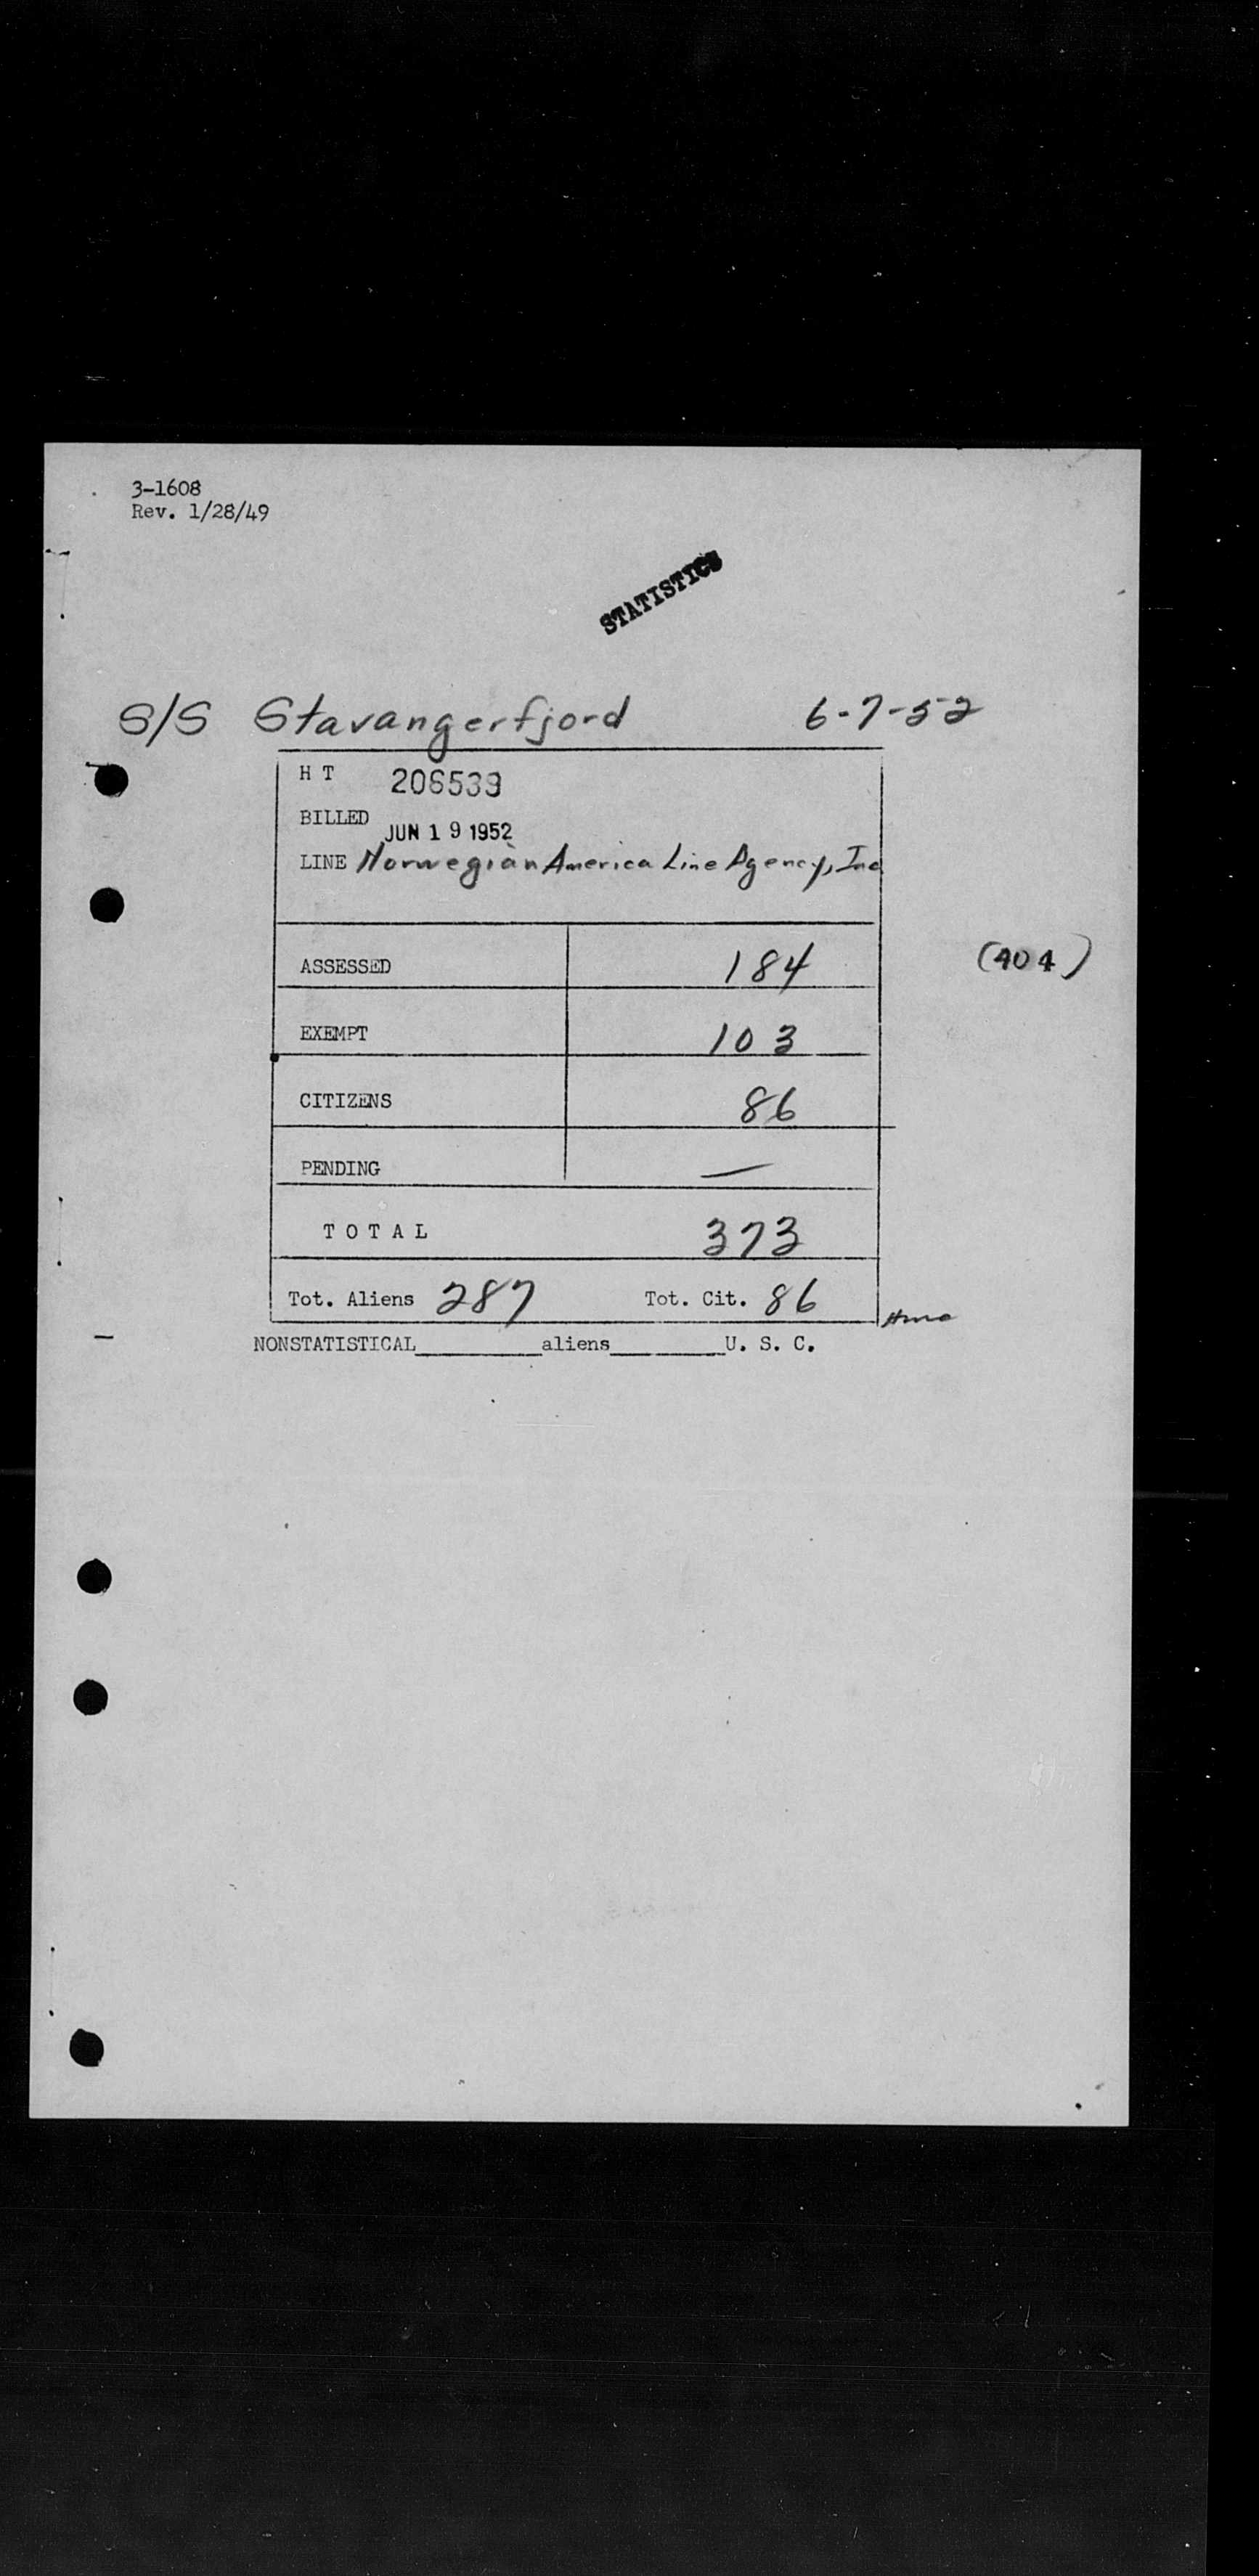 3-1608
Rev. 1/28/49
STATISTICS
S/S Stavangerfjord 6-7-52
H T 206539
BILLED JUN 19 1952
LINE Norwegian America Line Agency, Inc
ASSESSED 184 (404)
EXEMPT 103
CITIZENS 86
PENDING —
T O T A L 373
Tot. Aliens 287 Tot. Cit. 86
NONSTATISTICAL__________aliens_________U. S. C.